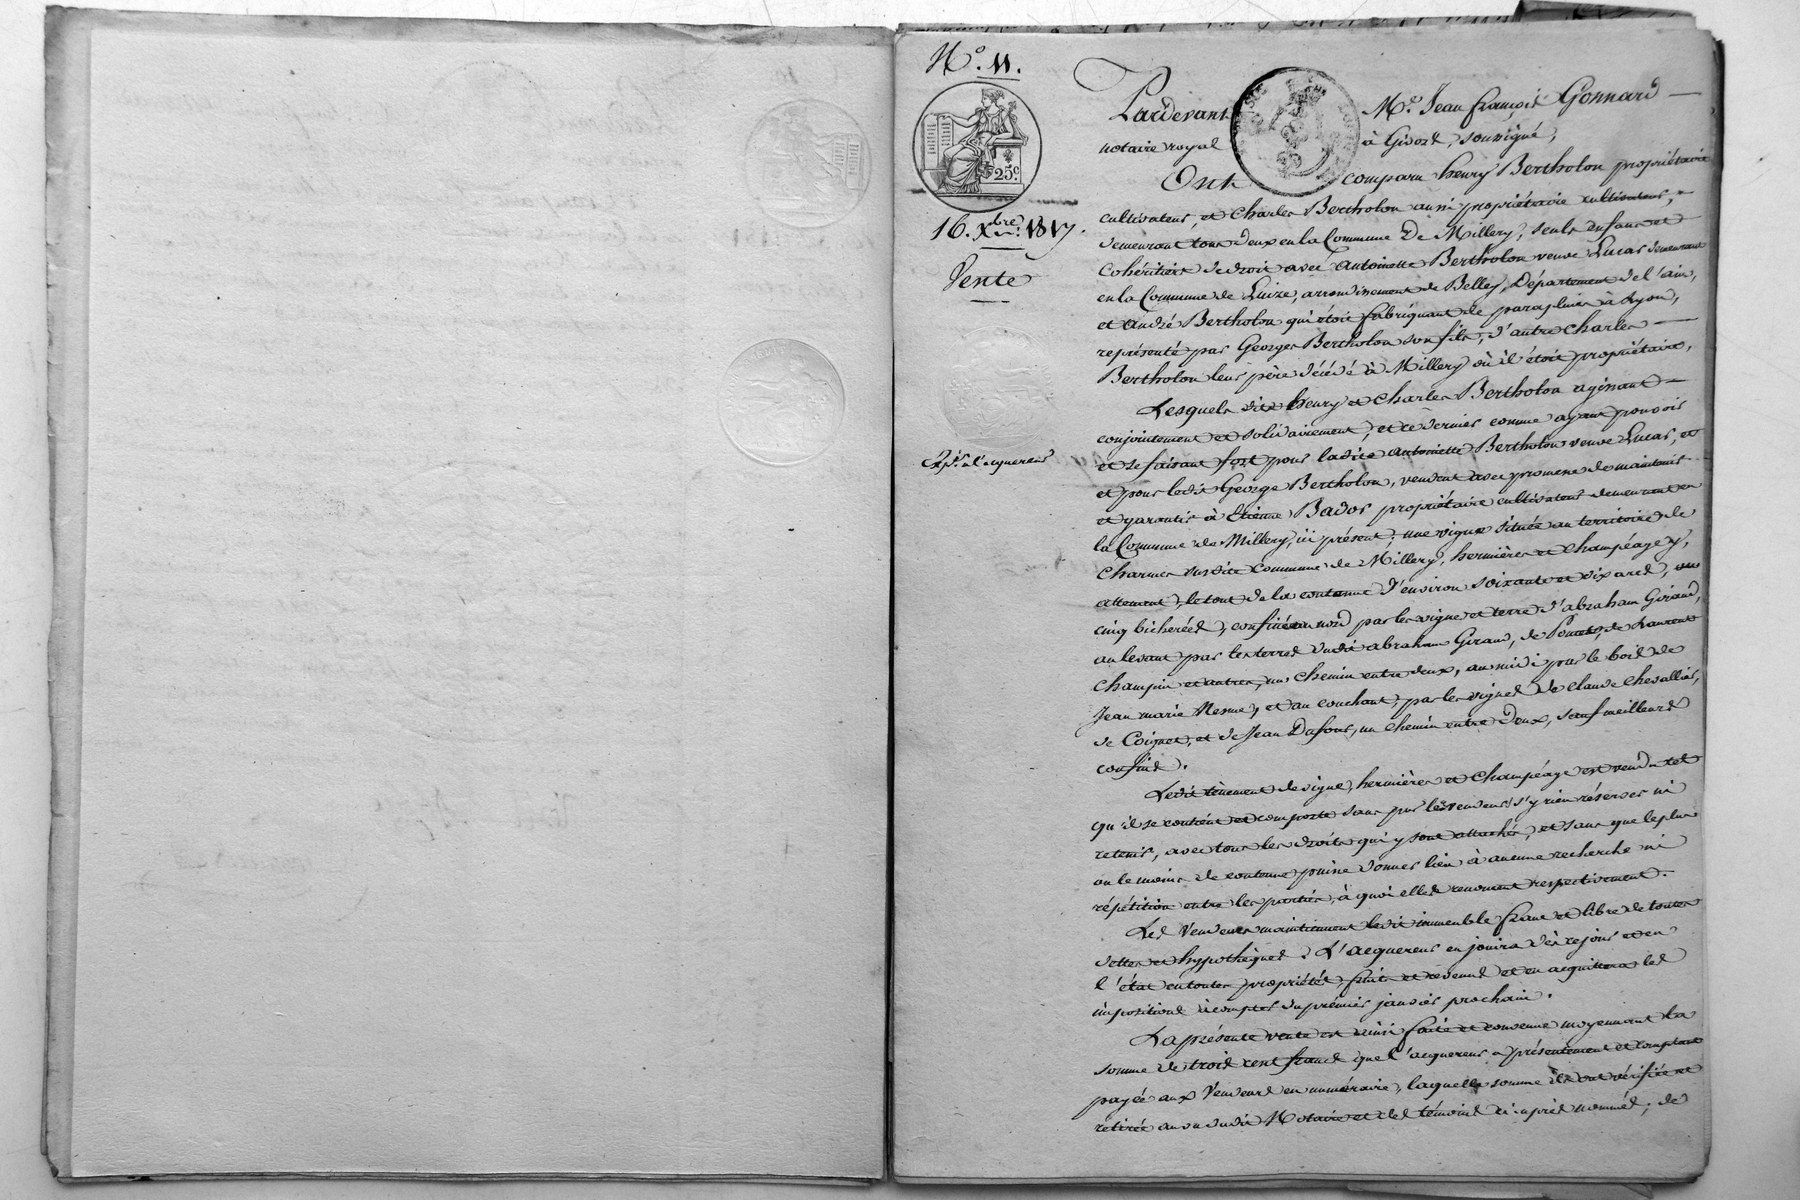 N.° 11.
25c
16. Xbre 1817.
Vente
Exp.n à l'acquereur
Pardevant Me. Jean françois Gonnard
notaire royal à Givors, soussigné,
Ont comparu henry Bertholon propriétaire
cultivateur, et Charles Bertholon aussi propriétaire cultivateur,
demeurant tous deux en la Commune De Millery, seuls enfans et
Cohéritiers de droit avec Antoinette Bertholon veuve Lucas demeurant
en la Commune de Luize, arrondissement de Belley, Département de l'ain,
et andré Bertholon qui étoit fabriquant de parapluies à Lyon,
représenté par Georges Bertholon son fils, d'autre Charles
Bertholon leur père décédé à Millery où il étoit propriétaire,
Lesquels dits henry et Charles Bertholon agissant
conjointement et solidairement, et ce dernier comme ayant pouvoir
et se faisant fort pour ladite Antoinette Bertholon veuve Lucas, et
et pour ledit George Bertholon, vendent avec promesse de maintenir
et garantir à Etienne Bador propriétaire cultivateur demeurant en
la Commune de Millery, ici présent, une vigne située au territoire de
Charmes susdite Commune de Millery, hermières et champéage y
attenant, le tout de la contenue d'environ soixante et dix ares, ou
cinq bicherées, confinée au nord par les vigne et terre d'abraham Giraud,
au levant par les terres dudit abraham Giraud, de Poncet, de Laurent
Champin et autres, un chemin entre deux, au midi par le bois de
Jean marie Nesme, et au couchant, par les vignes de Claude Chevallier,
de Coignet, et de Jean Dafour, un chemin entre deux, sauf meilleurs
confins.
Ledit tènement de vigne, hermières et champéage est vendu tel
qu'il se contient et comporte sans par les vendeurs s'y rien réserver ni
retenir, avec tous les droits qui y sont attachés, et sans que le plus
ou le moins de contenue puisse donner lieu à aucune recherche ni
répétition entre les parties, à quoi elles renoncent respectivement.
Les Vendeurs maintiennent ledit immeuble franc et libre de toutes
dettes et hypothèques. L'acquereur en jouira dès ce jour et en
l'état en toutes propriétés, fruits et revenus et en acquittera les
impositions à compter du prémier janvier prochain.
La présente vente est ainsi faite et convenue moyennant la
somme de trois cent francs que l'acquereur a présentement et comptant
payée aux Vendeurs en numéraire, laquelle somme ils ont vérifiée et
retirée au vu dudit Notaire et des témoins ci après nommés, de